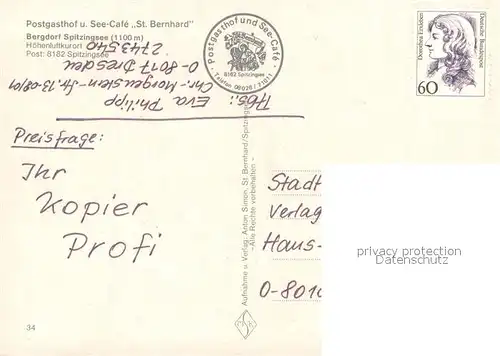 Postgasthof u. See-Café „St. Bernhard"
Bergdorf Spitzingsee (1100 m)
Höhenluftkurort
Post: 8182 Spitzingsee
Postgasthof und See-Café
8182 Spitzingsee
Telefon 08026 / 71011
Dorothea Erxleben
Deutsche Bundespost
60
Abs.: Eva Philipp
Chr.-Morgenstern-Str. 13-08/01
O-8017 Dresden
2743540
Preisfrage:
Ihr
Kopier
Profi
Aufnahme u. Verlag: Anton Simon, St. Bernhard/Spitzingsee
—Alle Rechte vorbehalten—
Stadt
Verlag
Hans-
O-8010
privacy protection
Datenschutz
34